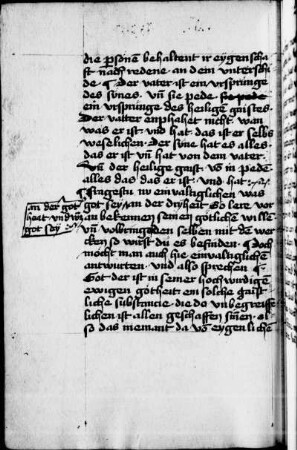 die personē behaltent ir eygenscha
ft nach redene an dem unterschi
de ¶ Der vater ist ein vrspringe
des sunes. vñ sie pede
ein vrspringe des heilige geistes.
Der vatter enphahet nicht. wan
was er ist vnd hat das ist er selbs
weselichen. Der sune hat es alles.
das er ist vñ hat von dem vater.
vñ der heilige gaist. vō in pedē
alles das das er ist. vnd hat
¶ fragestu nv einvaltiglichen was
got sey an der dryheit So lere vor
an bekennen seinen gotliche willē
vñ volbringe den selben mit dē wer
cken so wirst du es befinden ¶ Doch
mocht man auch hie einvaltigliche
antwurten. vnd also sprechen ¶
Got der ist in seiner hoch wirdigē
ewigen gotheit. ein solche gaist
liche substancie. die do vnbegreiff
lichen ist allen geschaffen sinēn. al
so das niemant da vō eygenliche
an der got
heit vnd was
got sey